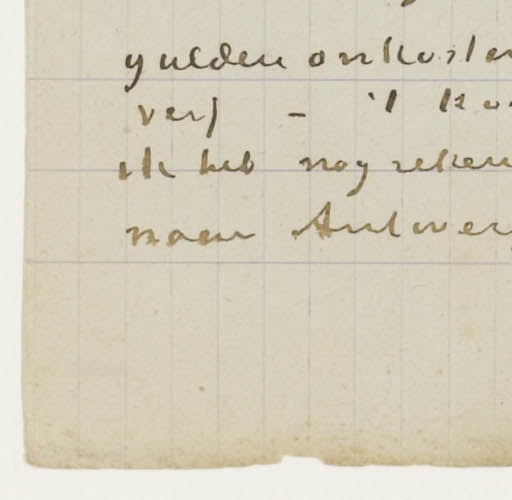 gulden onkosten
verf – 't ko
ik heb nog reken
naar Antwerp